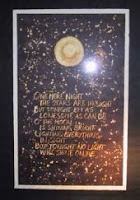 ONE MORE NIGHT
THE STARS ARE IN SIGHT
BUT TONIGHT I'M AS
LONESOME AS CAN BE
THE MOON
IS SHINING BRIGHT
LIGHTING EVERYTHING
IN SIGHT
BUT TONIGHT NO LIGHT
WILL SHINE ON ME